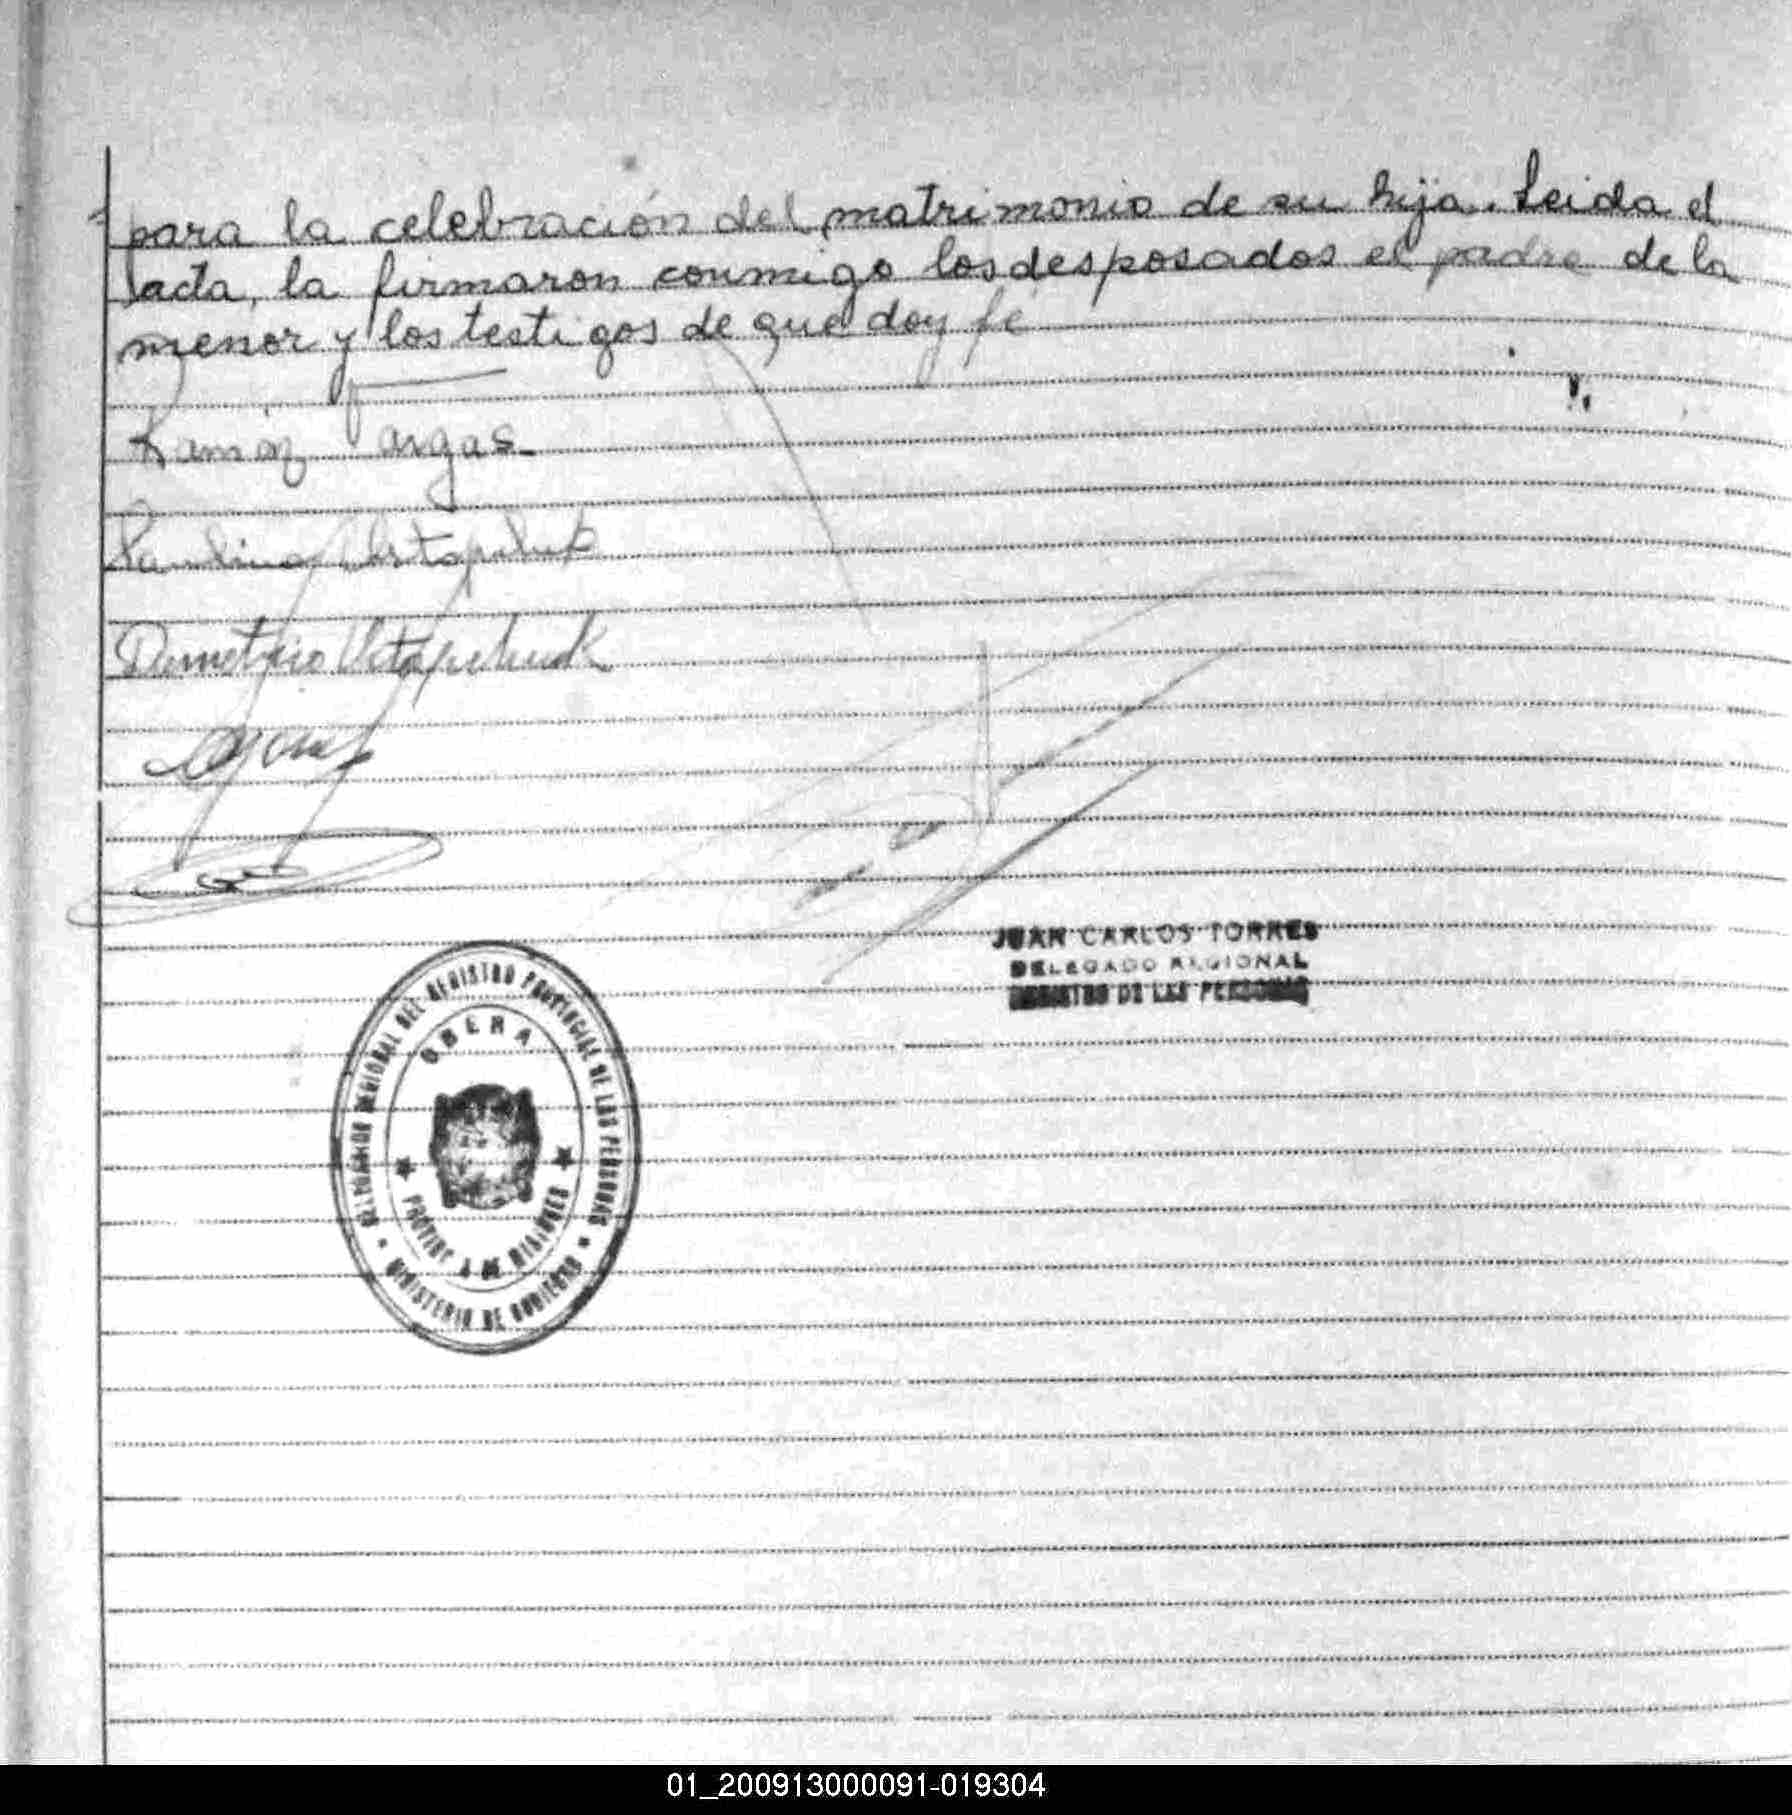 para la celebración del matrimonio de su hija. Leida el
acta, la firmaron conmigo los desposados el padre de la
menor y los testigos de que doy fé
Ramón Vargas
Paulina Ostapchuk
Demetrio Ostapchuk
JUAN CARLOS TORRES
DELEGADO REGIONAL
REGISTRO DE LAS PERSONAS
DELEGACION REGIONAL DEL REGISTRO PROVINCIAL DE LAS PERSONAS
OBERA
PROVINCIA DE MISIONES
MINISTERIO DE GOBIERNO
01_200913000091-019304